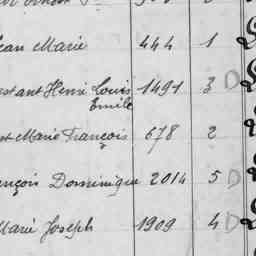 Jean Marie 444 1
Constant Henri Louis 1491 3 D
Emile
Marie François 678 2
François Dominique 2014 5 D
Marie Joseph 1909 4 D